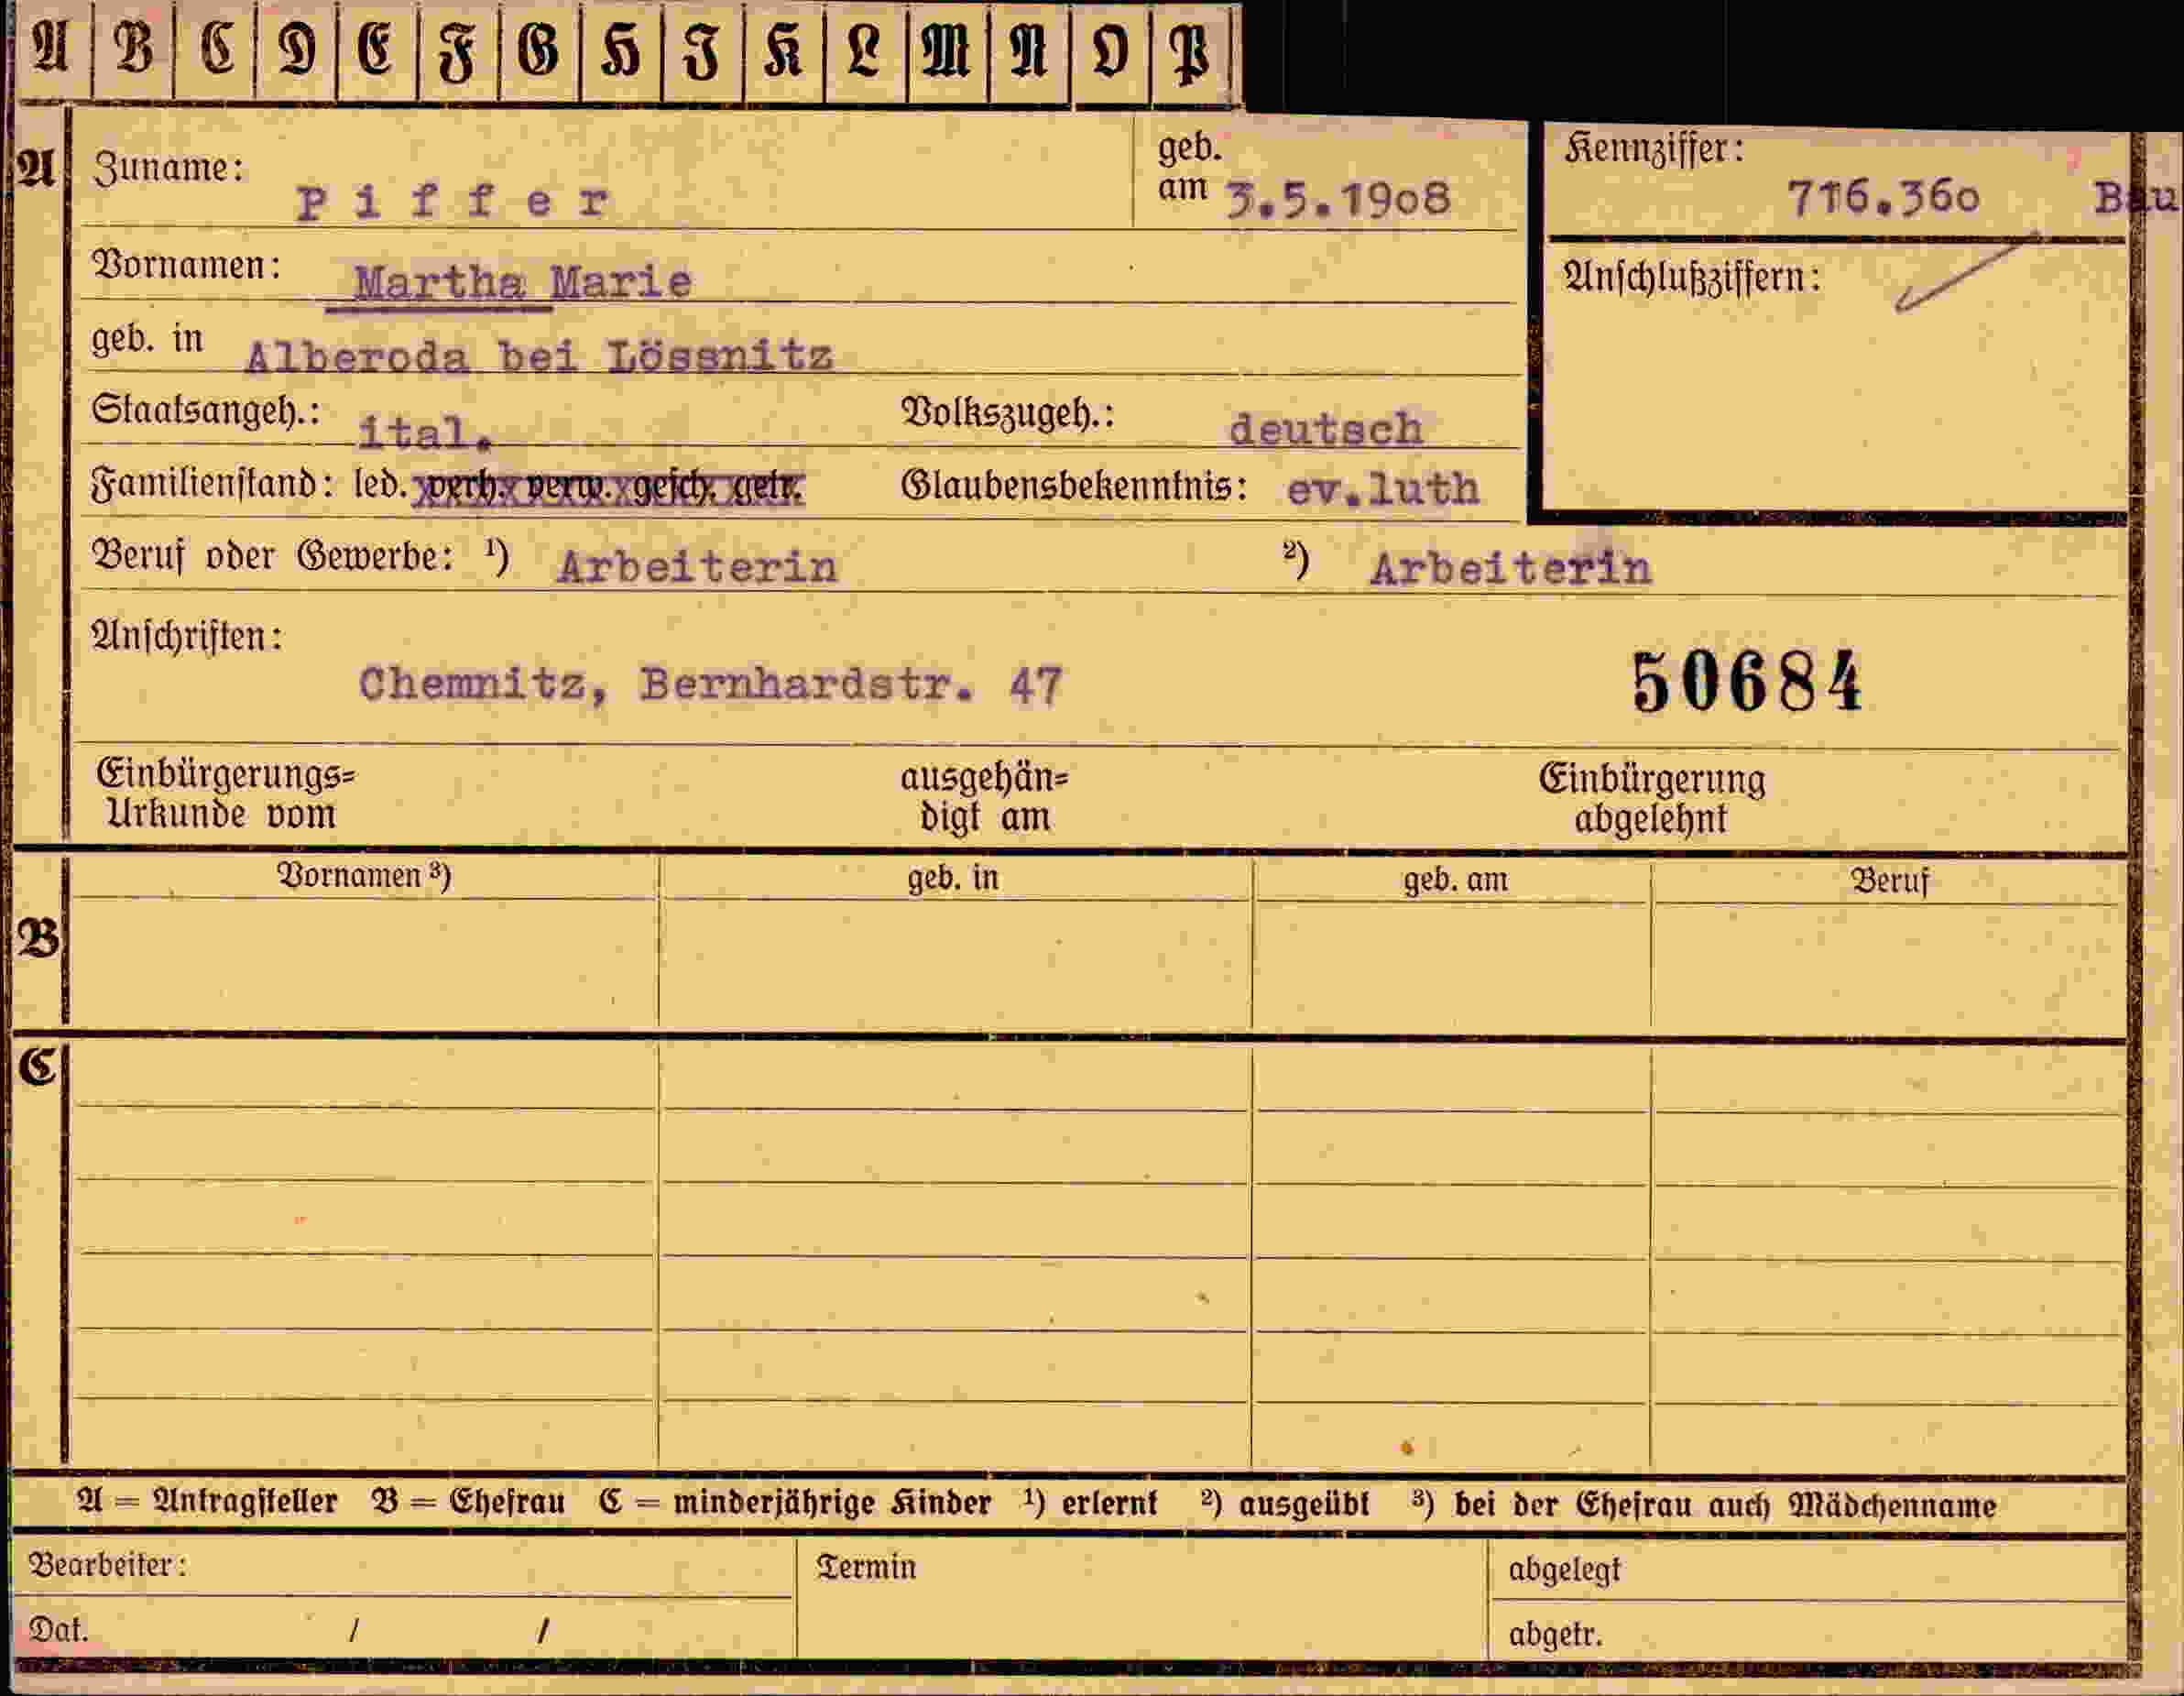 A B C D E F G H J K L M N O P
A Zuname: Piffer geb. am 3.5.19o8 Kennziffer: 716.36o Bau
Vornamen: Martha Marie Anschlußziffern:
geb. in Alberoda bei Lössnitz
Staatsangeh.: ital. Volkszugeh.: deutsch
Familienstand: led. verh. verw. gesch. getr. Glaubensbekenntnis: ev.luth
Beruf oder Gewerbe: ¹) Arbeiterin ²) Arbeiterin
Anschriften:
Chemnitz, Bernhardstr. 47 50684
Einbürgerungs= ausgehän= Einbürgerung
Urkunde vom digt am abgelehnt
Vornamen ³) geb. in geb. am Beruf
B
C
A = Antragsteller B = Ehefrau C = minderjährige Kinder ¹) erlernt ²) ausgeübt ³) bei der Ehefrau auch Mädchenname
Bearbeiter: Termin abgelegt
Dat. / / abgetr.